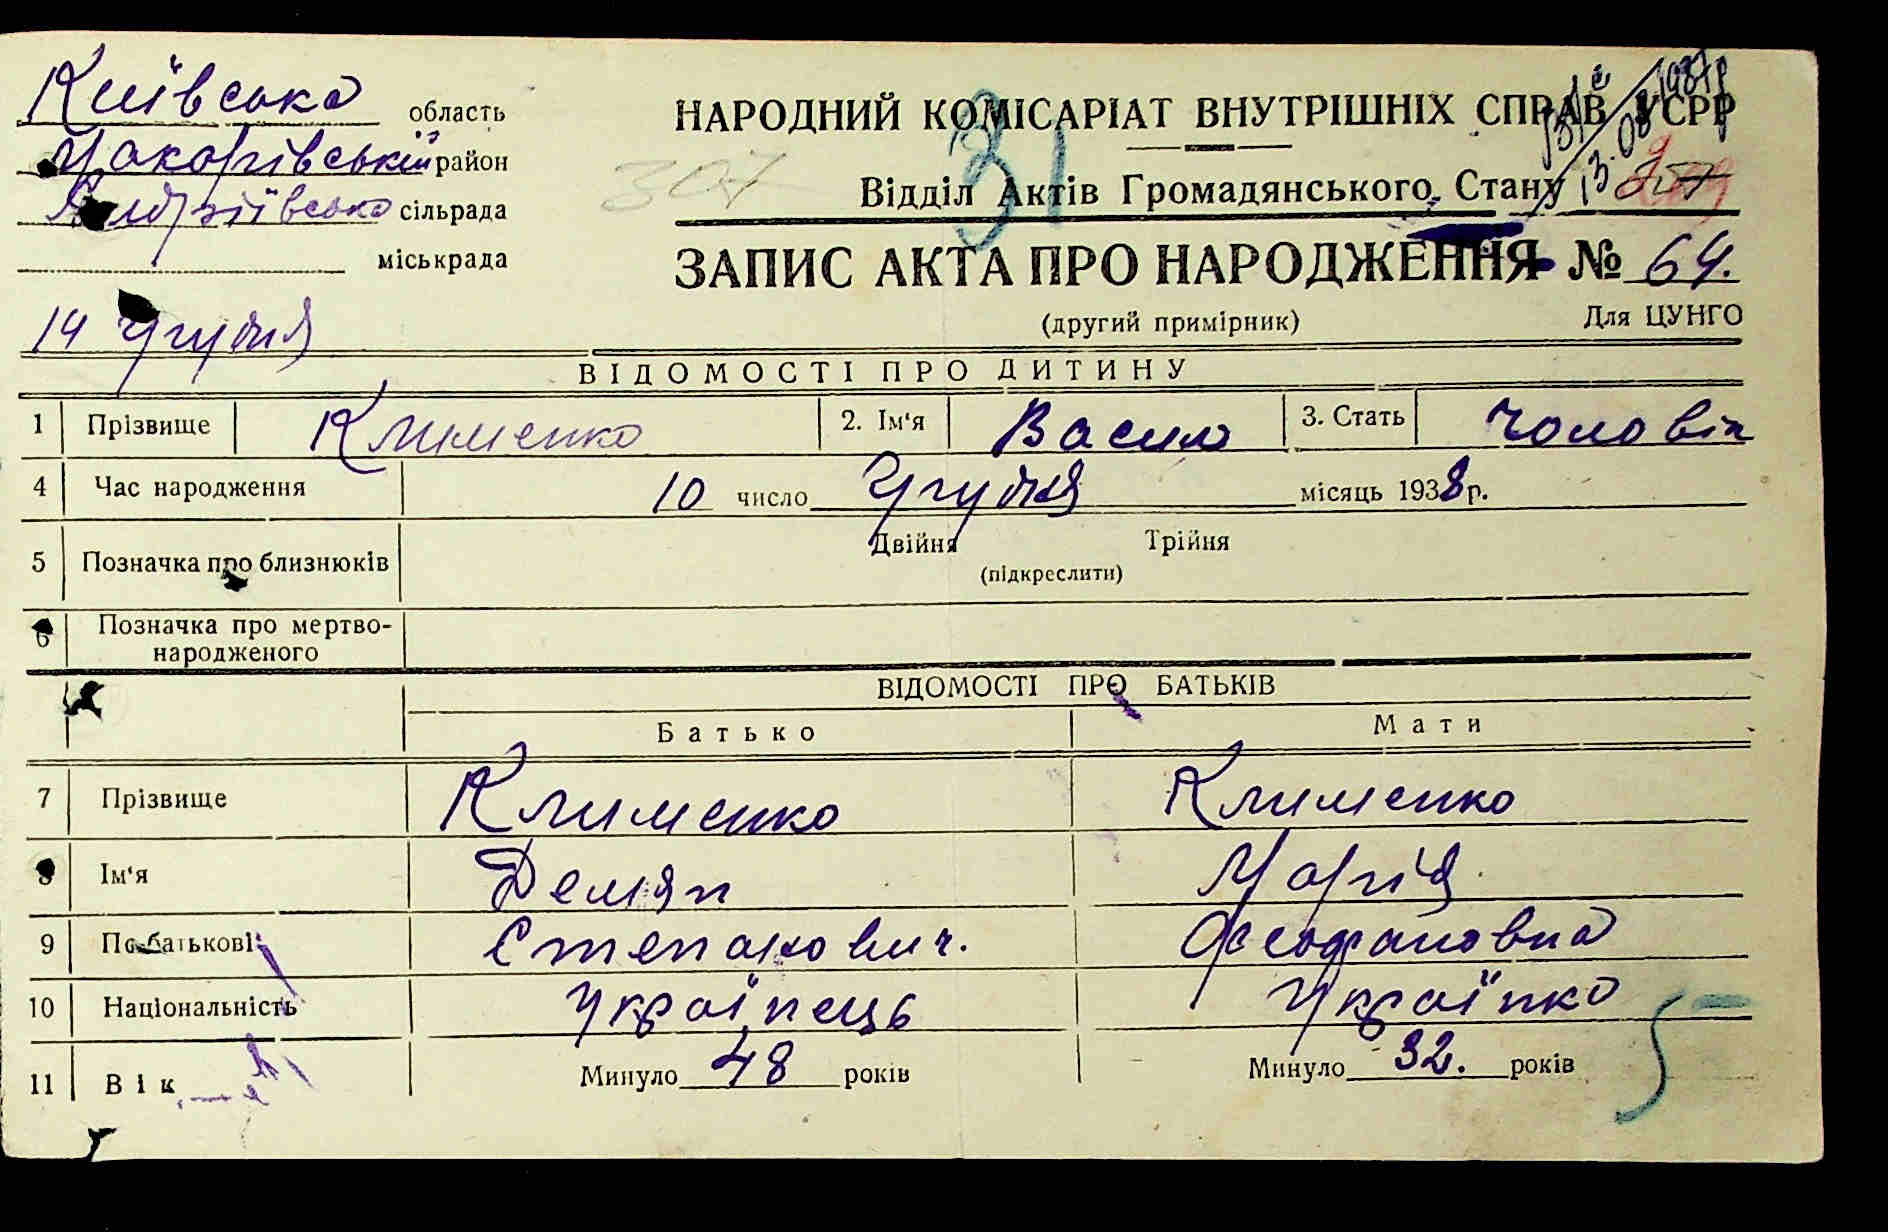 Київська область
Макарівський район
Андріївська сільрада
міськрада
14 Грудня
НАРОДНИЙ КОМІСАРІАТ ВНУТРІШНІХ СПРАВ УСРР
307
31
Відділ Актів Громадянського Стану
13.08.1987р
ЗАПИС АКТА ПРО НАРОДЖЕННЯ № 64.
(другий примірник) Для ЦУНГО
ВІДОМОСТІ ПРО ДИТИНУ
1 Прізвище Клименко 2. Ім'я Васил 3. Стать чоловік
4 Час народження 10 число Грудня місяць 1938р.
5 Позначка про близнюків Двійня Трійня
(підкреслити)
6 Позначка про мертво-
народженого
ВІДОМОСТІ ПРО БАТЬКІВ
Батько Мати
7 Прізвище Клименко Клименко
8 Ім'я Демян Марія
9 По батькові Степанович. Феофановна
10 Національність Українець Українка
11 Вік Минуло 48 років Минуло 32. років
5